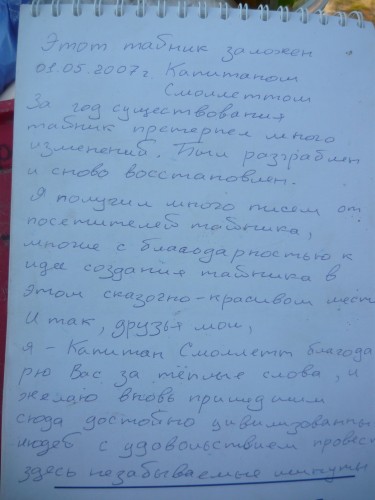 Этот табник заложен
01.05.2007г. Капитаном
Смоллеттом
За год существования
табник претерпел много
изменений. Был разграблен
и снова восстановлен.
Я получил много писем от
посетителей табника,
многие с благодарностью к
идее создания табника в
этом сказочно-красивом месте
И так, друзья мои,
я - Капитан Смоллетт благода
рю Вас за тёплые слова, и
желаю вновь пришедшим
сюда достойно цивилизованных
людей с удовольствием провест
здесь незабываемые минуты